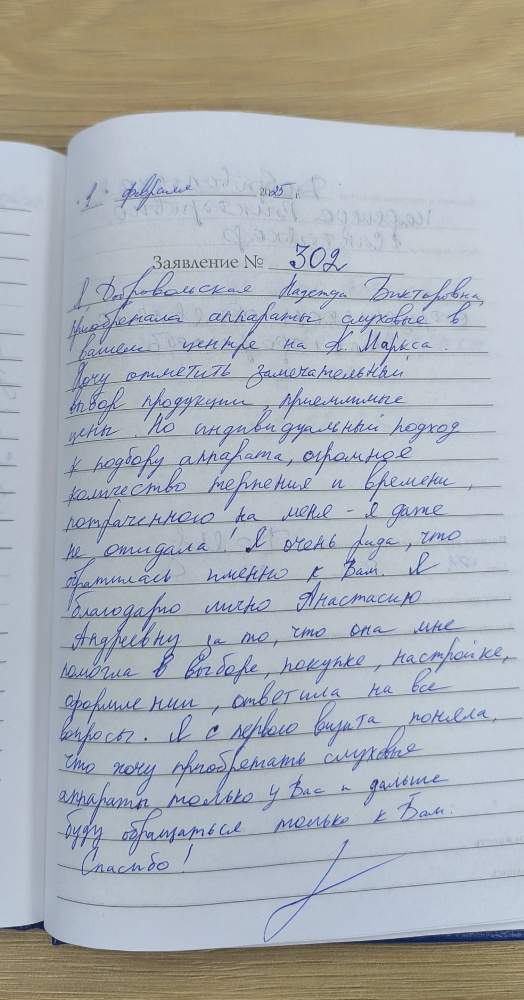 „1" февраля 2025 г.
Заявление № 302
Я Добровольская Надежда Викторовна,
приобретала аппараты слуховые в
вашем центре на К. Маркса.
Хочу отметить замечательный
выбор продукции, приемлимые
цены. Но индивидуальный подход
к подбору аппарата, огромное
количество терпения и времени,
потраченного на меня - я даже
не ожидала! Я очень рада, что
обратилась именно к Вам. Я
благодарю лично Анастасию
Андреевну за то, что она мне
помогла в выборе, покупке, настройке,
оформлении, ответила на все
вопросы. Я с первого визита поняла,
что хочу приобретать слуховые
аппараты только у Вас и дальше
буду обращаться только к Вам.
Спасибо!